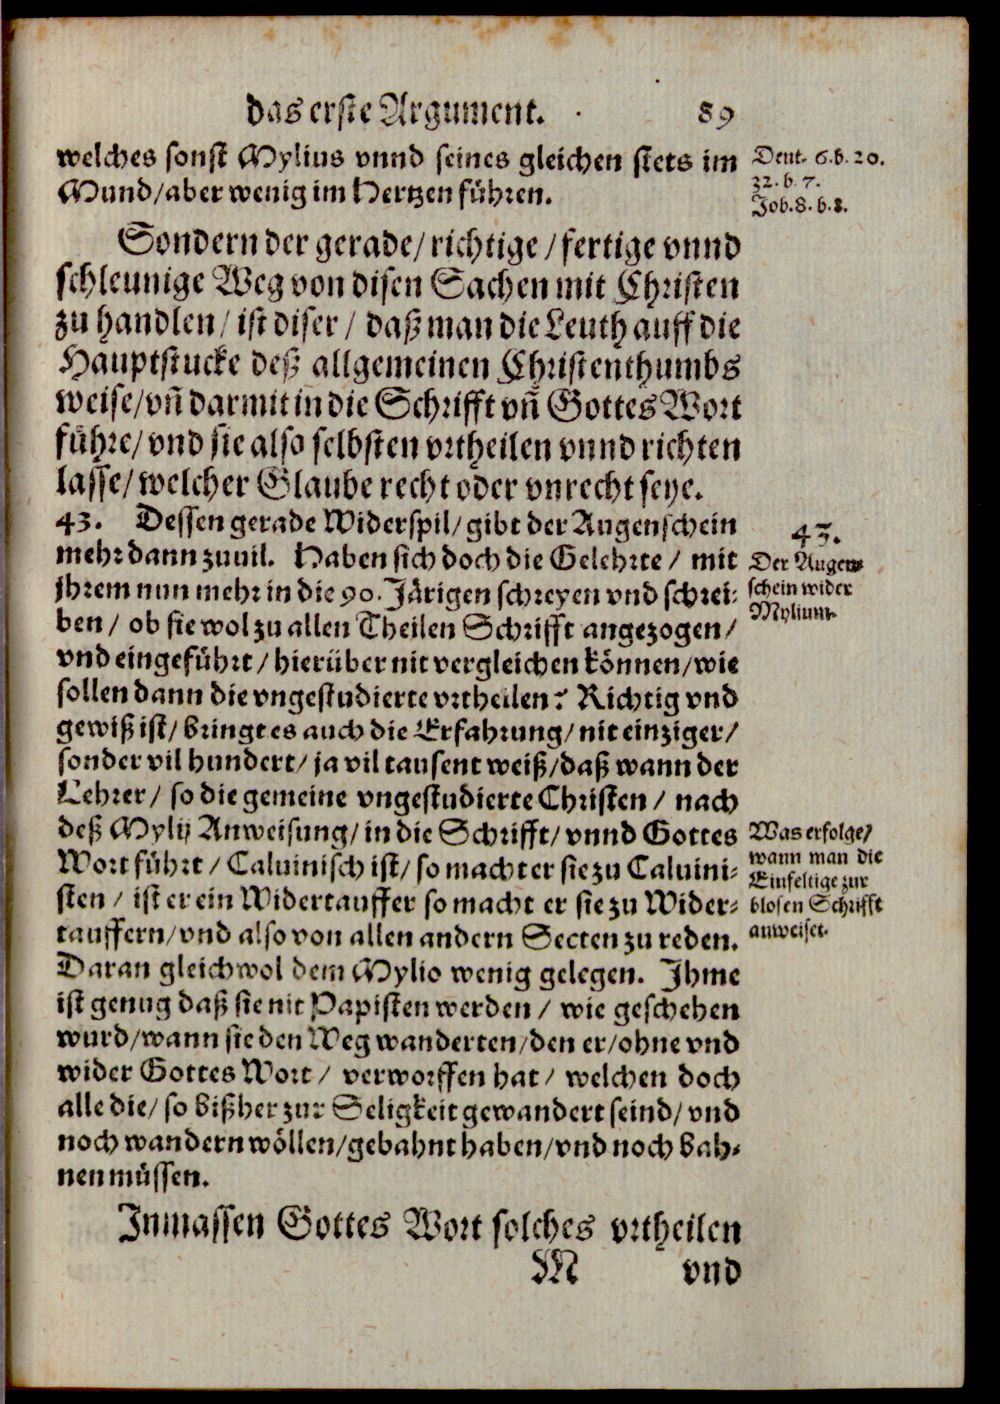 das erste Argument. 89
welches sonst Mylius vnnd seines gleichen stets im
Mund/aber wenig im Hertzen führen.
Deut. 6.b.20.
32.b.7.
Job.8.b.8.
Sondern der gerade/richtige/fertige vnnd
schleunige Weg von disen Sachen mit Christen
zu handlen/ ist diser/ daß man die Leuth auff die
Hauptstucke deß allgemeinen Christenthumbs
weise/vñ darmit in die Schrifft vñ Gottes Wort
führe/vnd sie also selbsten vrtheilen vnnd richten
lasse/welcher Glaube recht oder vnrecht seye.
43. Dessen gerade Widerspil/gibt der Augenschein
mehr dann zuuil. Haben sich doch die Gelehrte/ mit
jhrem nun mehr in die 90. Järigen schreyen vnd schrei-
ben/ ob sie wol zu allen Theilen Schrifft angezogen/
vnd eingeführt/hierüber nit vergleichen können/wie
sollen dann die vngestudierte vrtheilen? Richtig vnd
gewiß ist/bringt es auch die Erfahrung/nit einziger/
sonder vil hundert/ja vil tausent weiß/daß wann der
Lehrer/ so die gemeine vngestudierte Christen/ nach
deß Mylij Anweisung/in die Schrifft/vnnd Gottes
Wort führt/Caluinisch ist/so macht er sie zu Caluini-
sten/ ist er ein Widertauffer so macht er sie zu Wider-
tauffern/vnd also von allen andern Secten zu reden.
Daran gleichwol dem Mylio wenig gelegen. Jhme
ist genug daß sie nit Papisten werden/ wie geschehen
wurd/wann sie den Weg wanderten/den er/ohne vnd
wider Gottes Wort/ verworffen hat/ welchen doch
alle die/so bißher zur Seligkeit gewandert seind/vnd
noch wandern wöllen/gebahnt haben/vnd noch bah-
nen müssen.
43.
Der Augen-
schein wider
Mylium.
Was erfolge/
wann man die
Einfeltige zur
blosen Schrifft
anweiset.
Inmassen Gottes Wort solches vrtheilen
M vnd